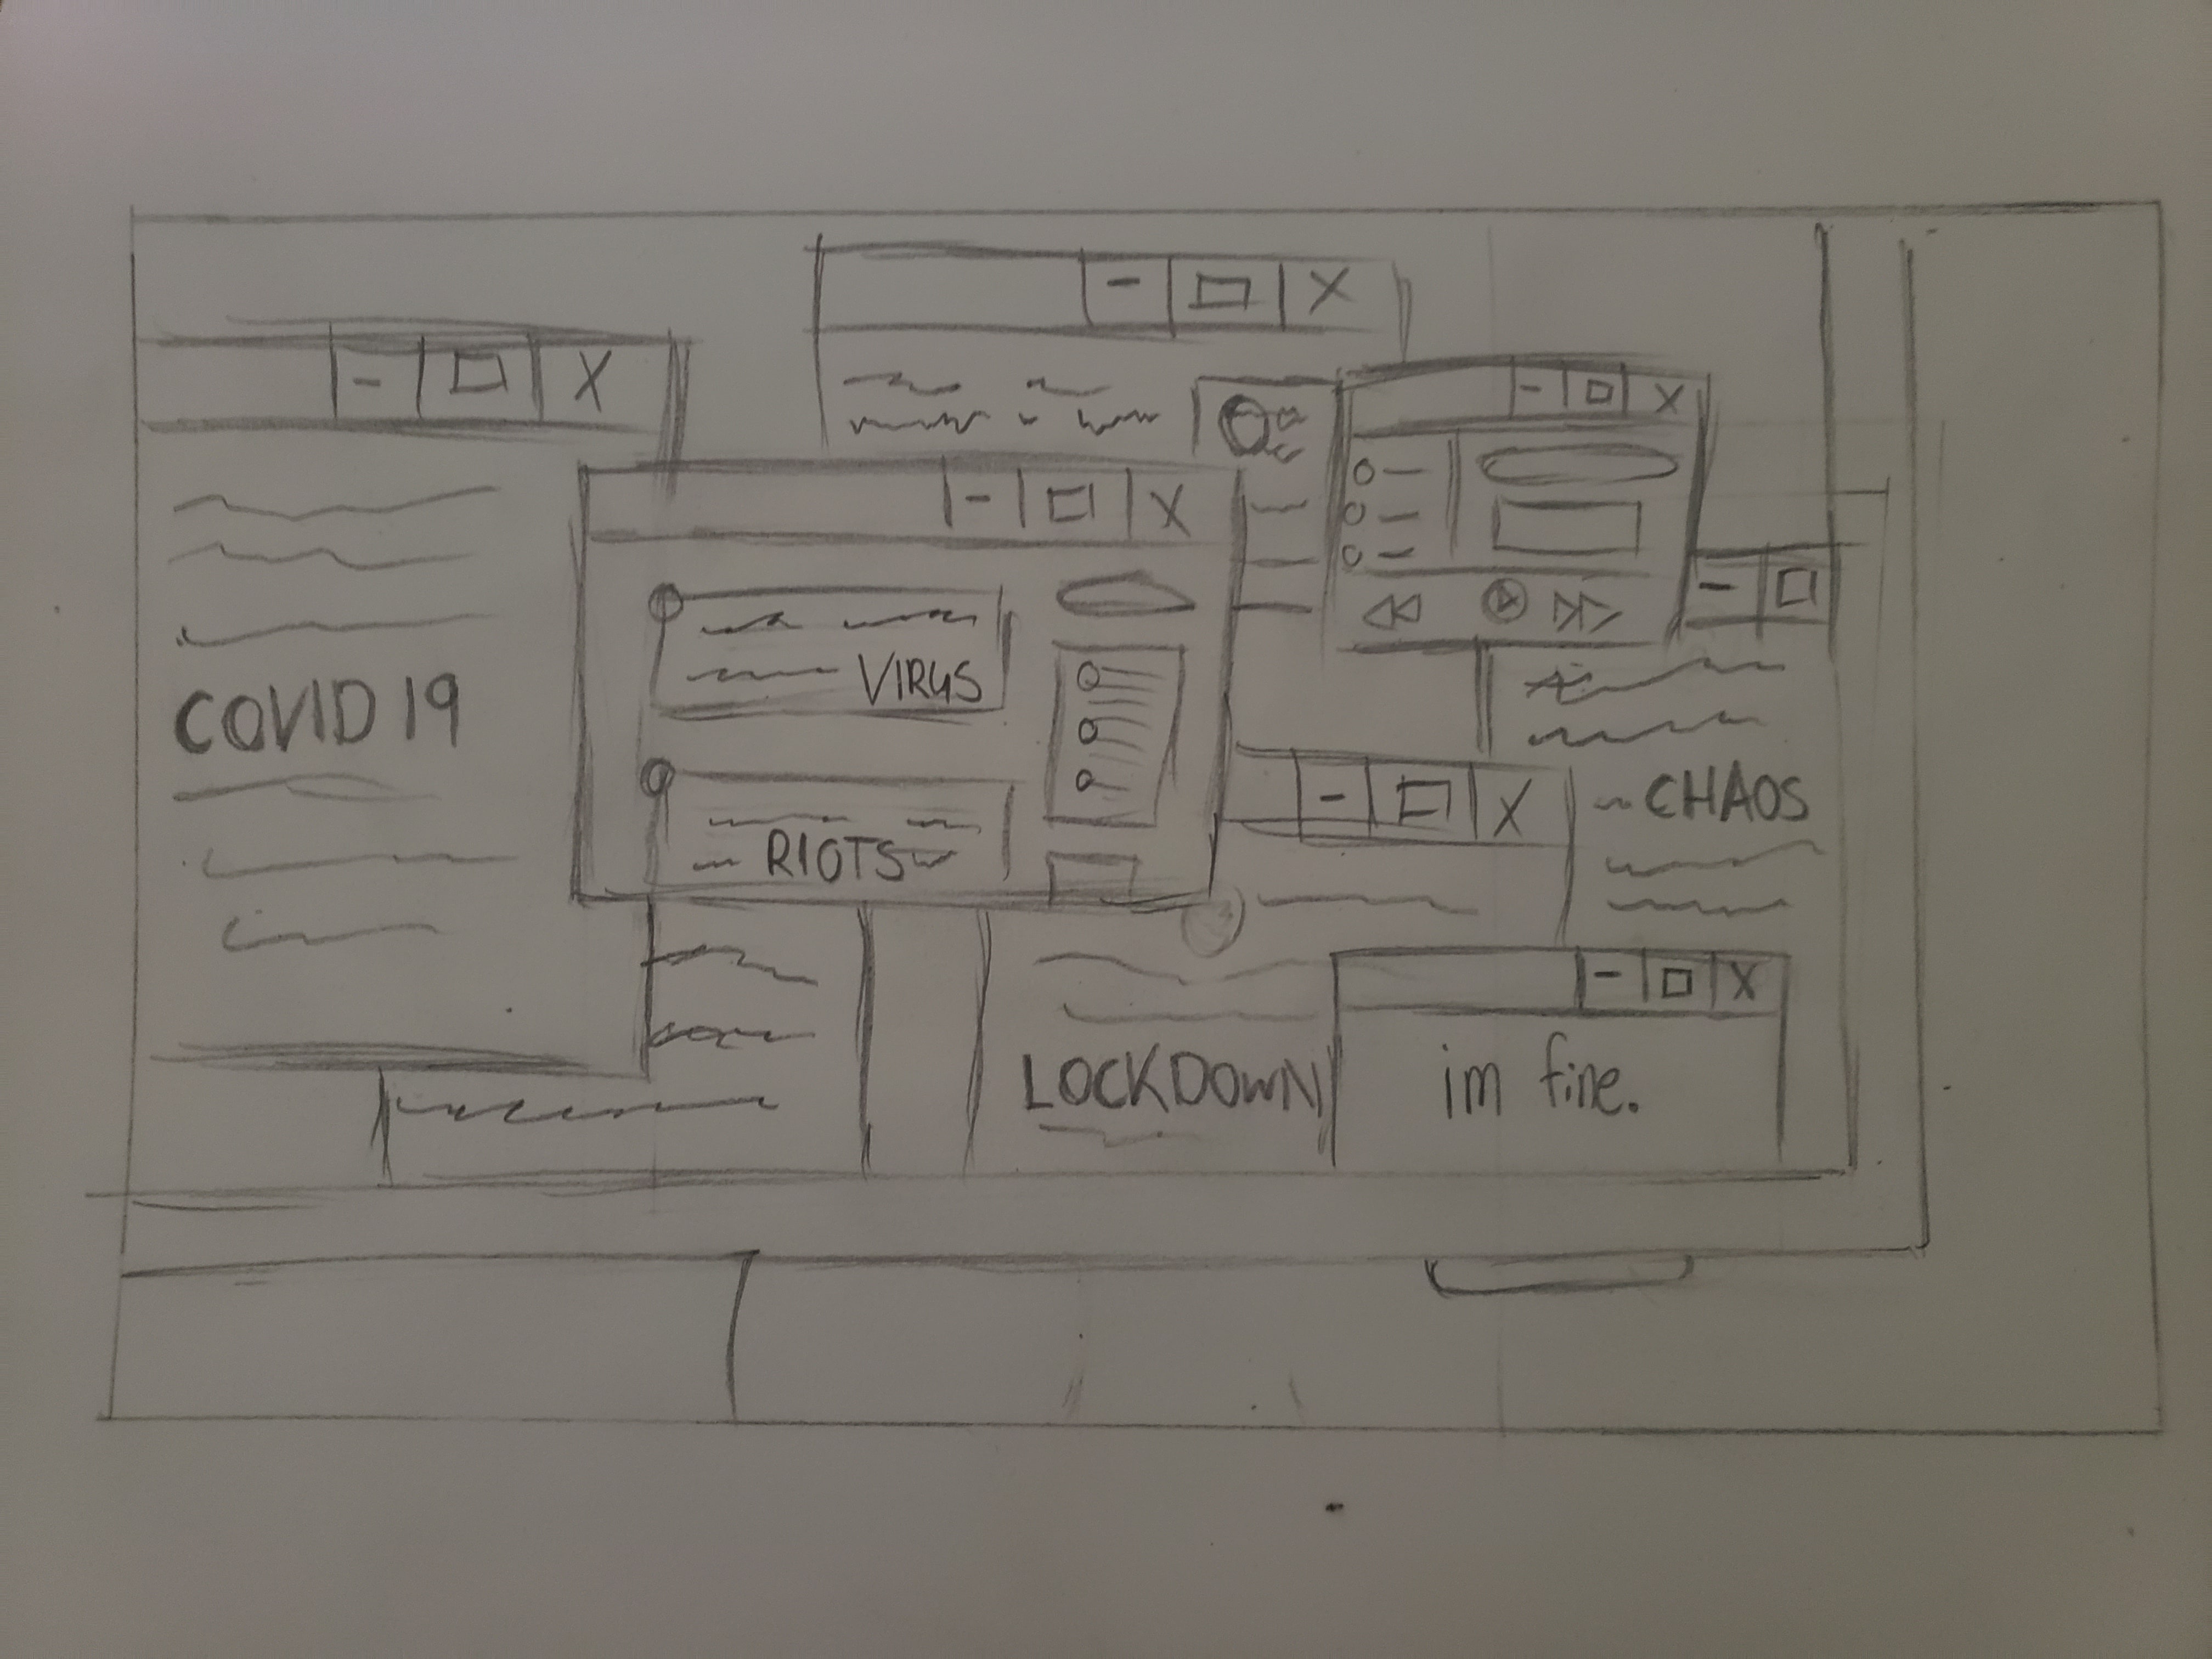 COVID 19
VIRUS
RIOTS
CHAOS
LOCKDOWN
im fine.